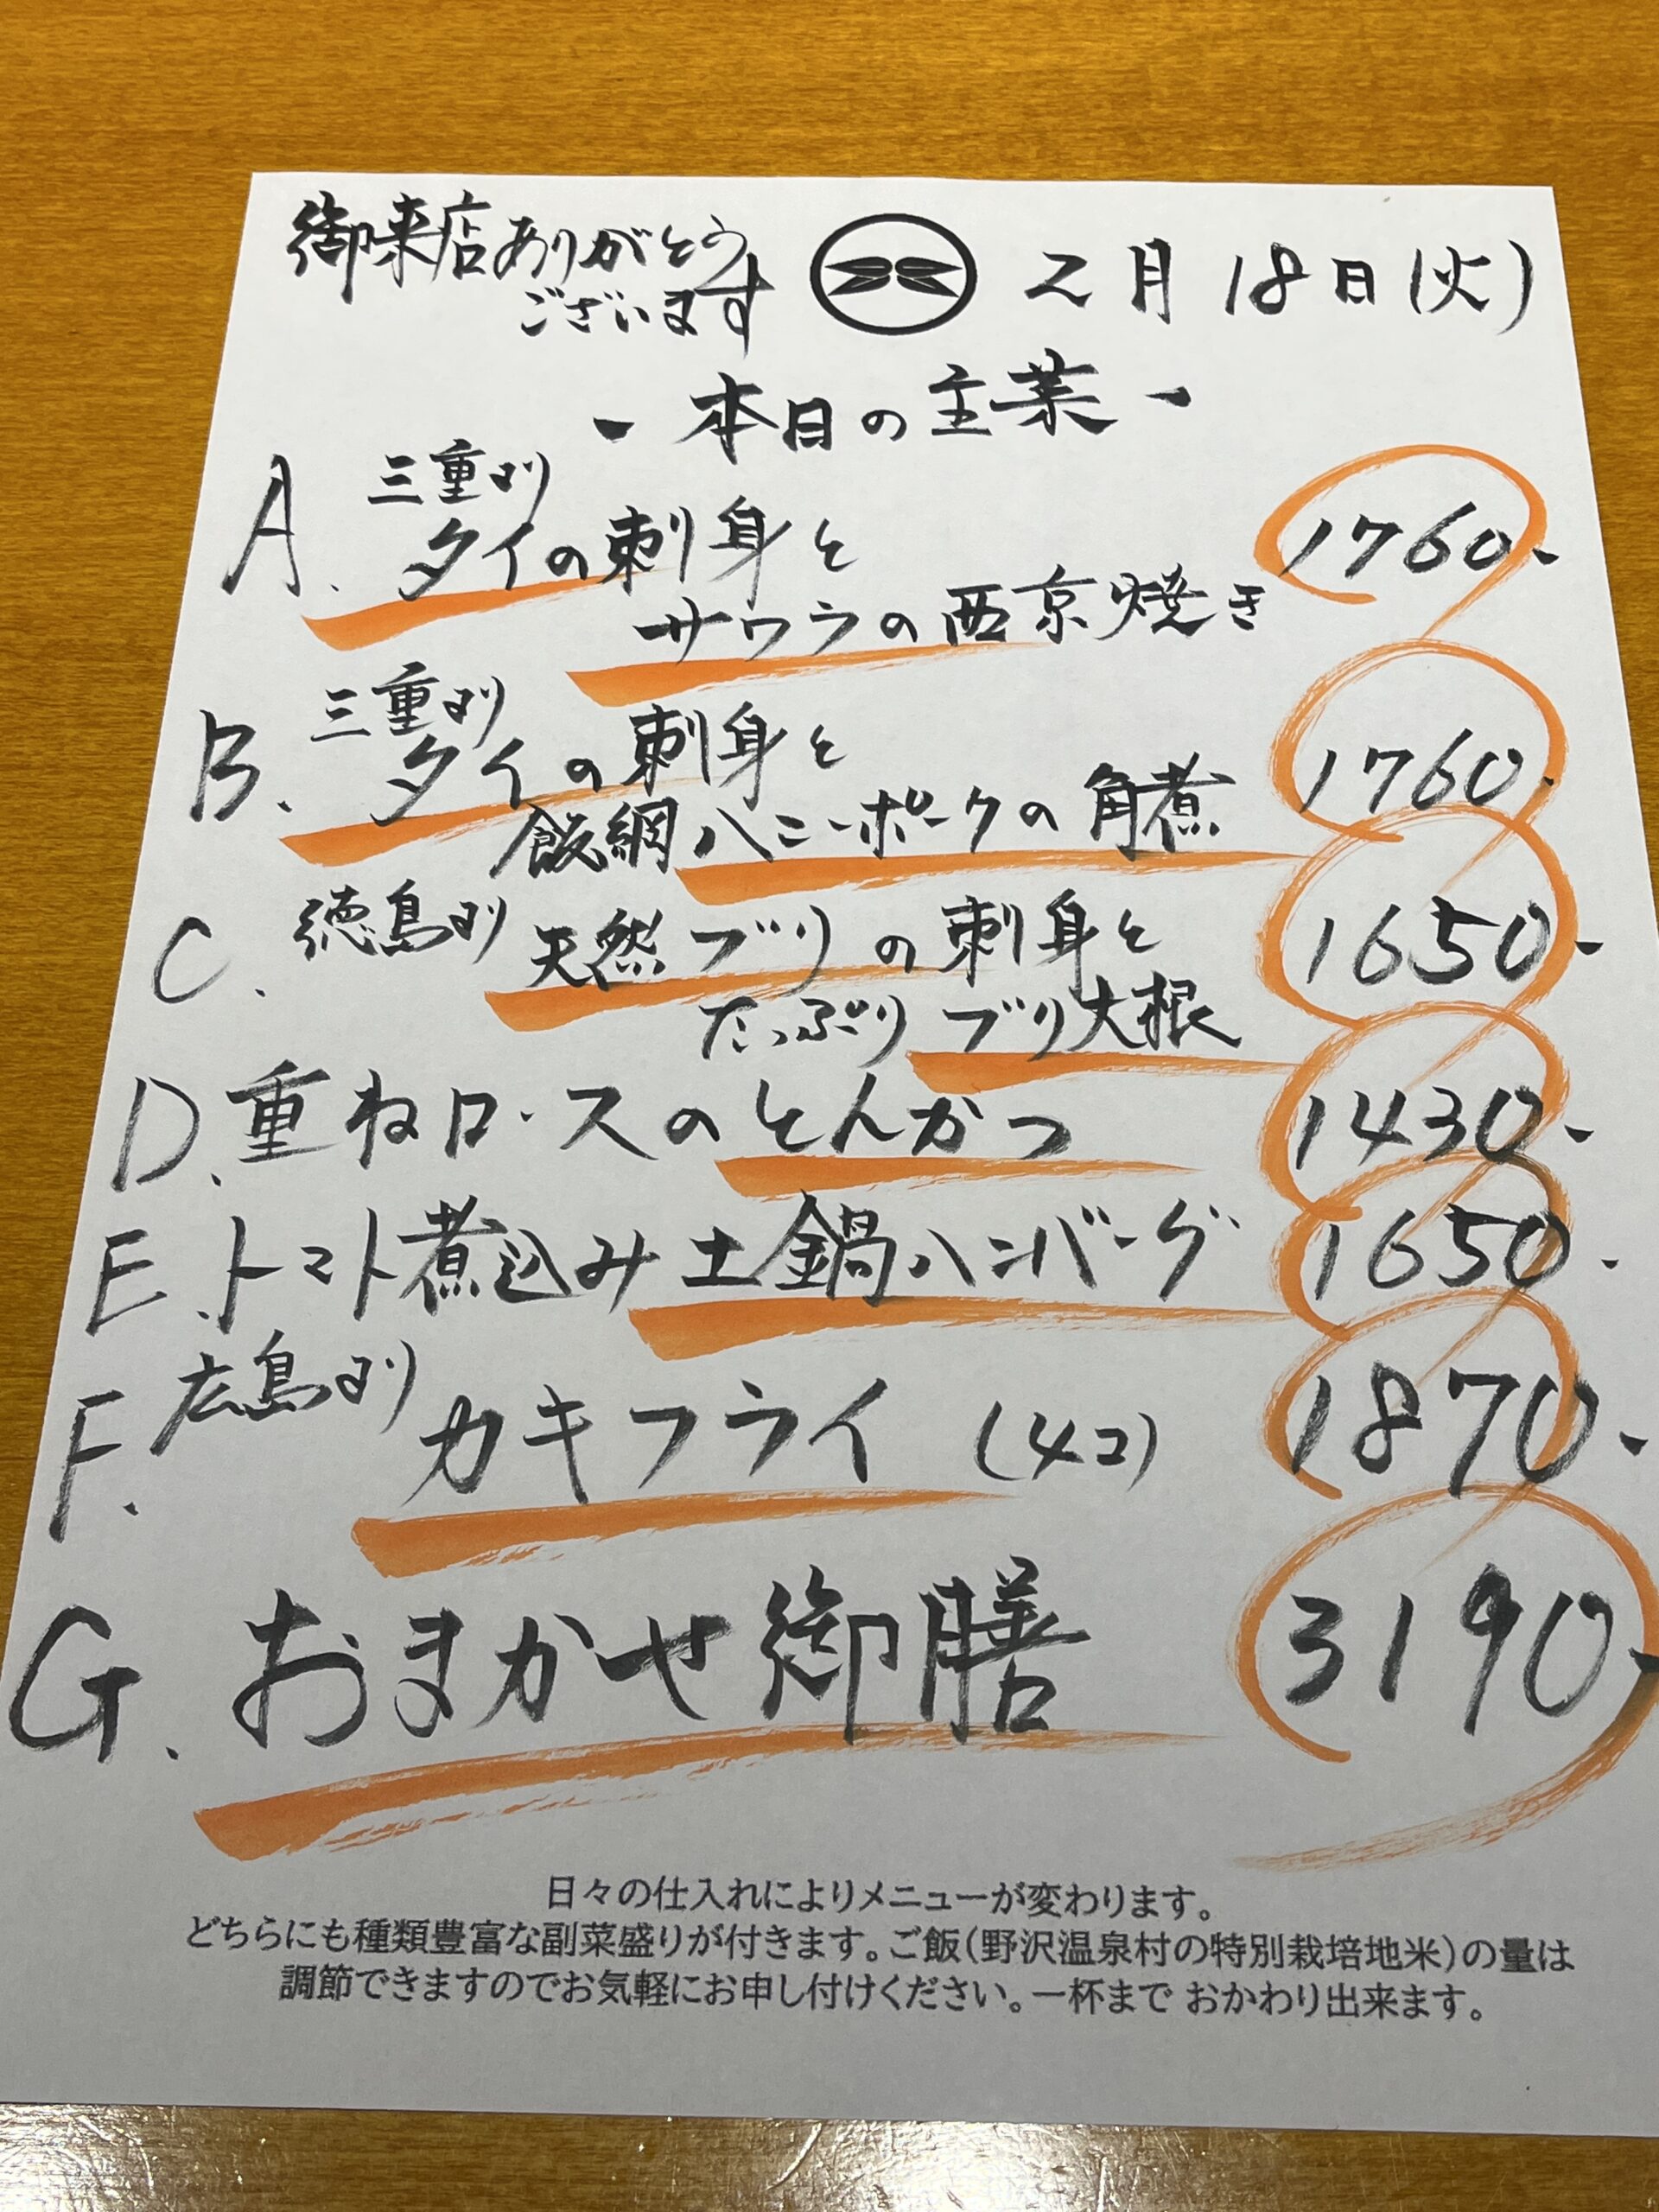 御来店ありがとう
ございます
2月18日(火)
-本日の主菜-
A. 三重より
タイの刺身と
サワラの西京焼き
1760-
B. 三重より
タイの刺身と
飯綱ハニーポークの角煮
1760-
C. 徳島より 天然ブリの刺身と
たっぷりブリ大根
1650-
D. 重ねロースのとんかつ 1430-
E. トマト煮込み土鍋ハンバーグ 1650-
F. 広島より
カキフライ (4コ) 1870-
G. おまかせ御膳 3190-
日々の仕入れによりメニューが変わります。
どちらにも種類豊富な副菜盛りが付きます。ご飯(野沢温泉村の特別栽培地米)の量は
調節できますのでお気軽にお申し付けください。一杯まで おかわり出来ます。